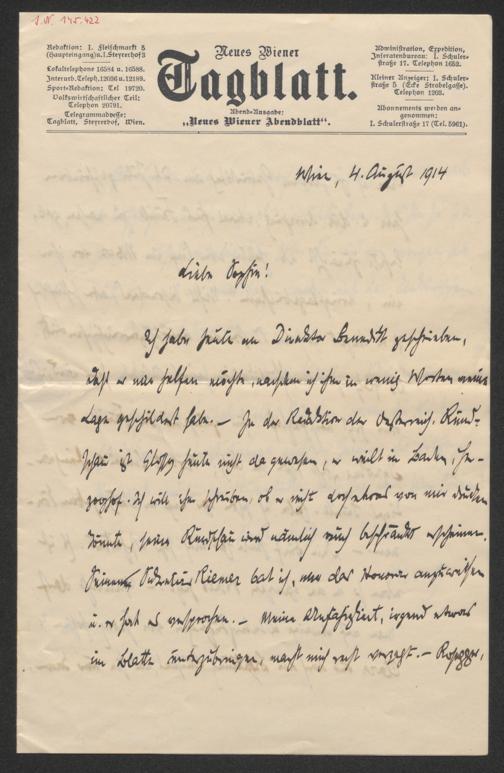 I.N. 145.422
Redaktion: I. Fleischmarkt 5
(Haupteingang) u. I. Steyrerhof 3
Lokaltelephone 16584 u. 16588.
Interurb. Teleph. 12036 u. 12189.
Sport-Redaktion: Tel 19720.
Volkswirtschaftlicher Teil:
Telephon 20791.
Telegrammadresse:
Tagblatt, Steyrerhof, Wien.
Neues Wiener
Tagblatt.
Abend-Ausgabe:
„Neues Wiener Abendblatt“.
Administration, Expedition,
Inseratenbureau: I. Schuler-
straße 17. Telephon 1652.
Kleiner Anzeiger: I. Schuler-
straße 5 (Ecke Strobelgasse).
Telephon 1203.
Abonnements werden an-
genommen:
I. Schulerstraße 17 (Tel. 5961).
Wien, 4. August 1914
Liebe Sophie!
Ich habe heute an Direktor Benedikt geschrieben,
daß er mir helfen möchte, nachdem ich ihm in wenig Worten meine
Lage geschildert habe. – In der Redaktion der Oesterreich. Rund-
schau ist Glossy heute nicht da gewesen, er weilt in Baden, He-
zoghof. Ich will ihm schreiben, ob er nicht doch etwas von mir drucken
könnte, seine Rundschau wird nämlich auch beschränkt erscheinen.
Seinen Sekretär Riemer bat ich, mir das Honorar anzuweisen
u. er hat es versprochen. – Meine Unfähigkeit, irgend etwas
im Blatte unterzubringen, macht mich recht verzagt. – Rosegger,